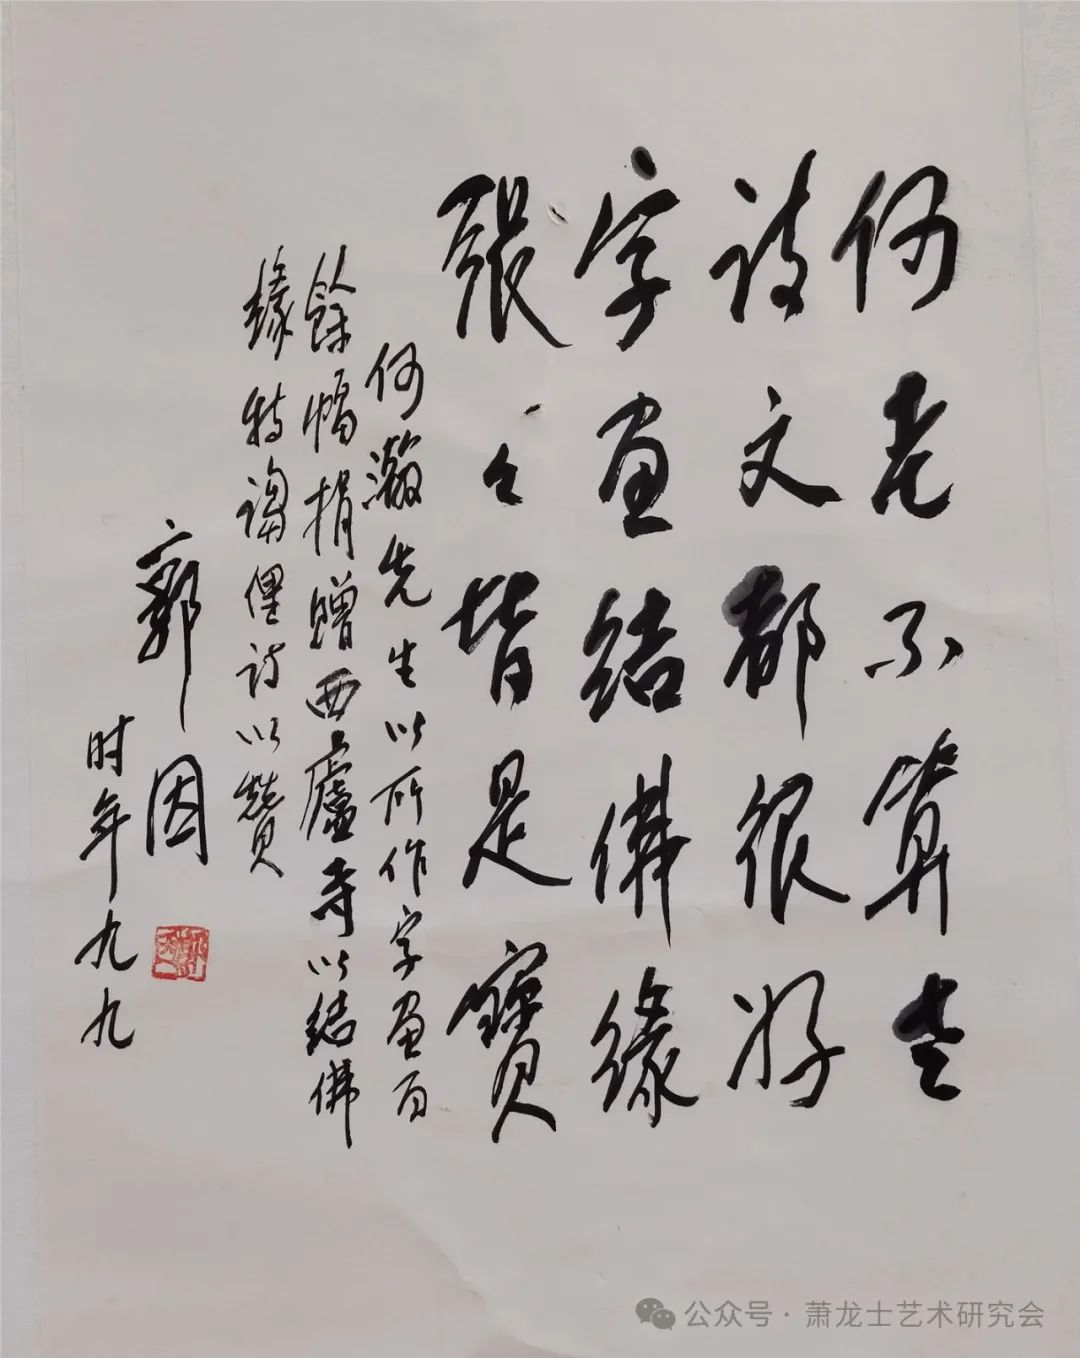 何老不算老
詩文都很好
字画结佛缘
張々皆是寳
何瀲先生以所作字画百
餘幅捐贈西廬寺以结佛
缘特謅俚詩以赞
郭因
时年九九
公众号·萧龙士艺术研究会